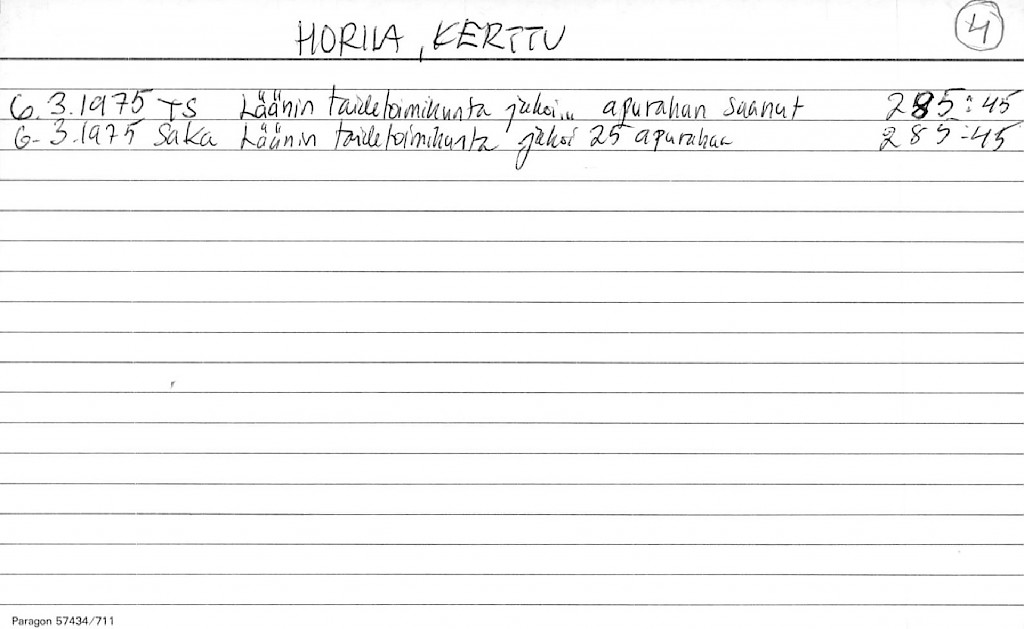 HORILA, KERTTU
4
6.3.1975 TS Läänin taidetoimikunta jakoi... apurahan saanut 285:45
6.3.1975 SaKa Läänin taidetoimikunta jakoi 25 apurahaa 285:45
Paragon 57434/711